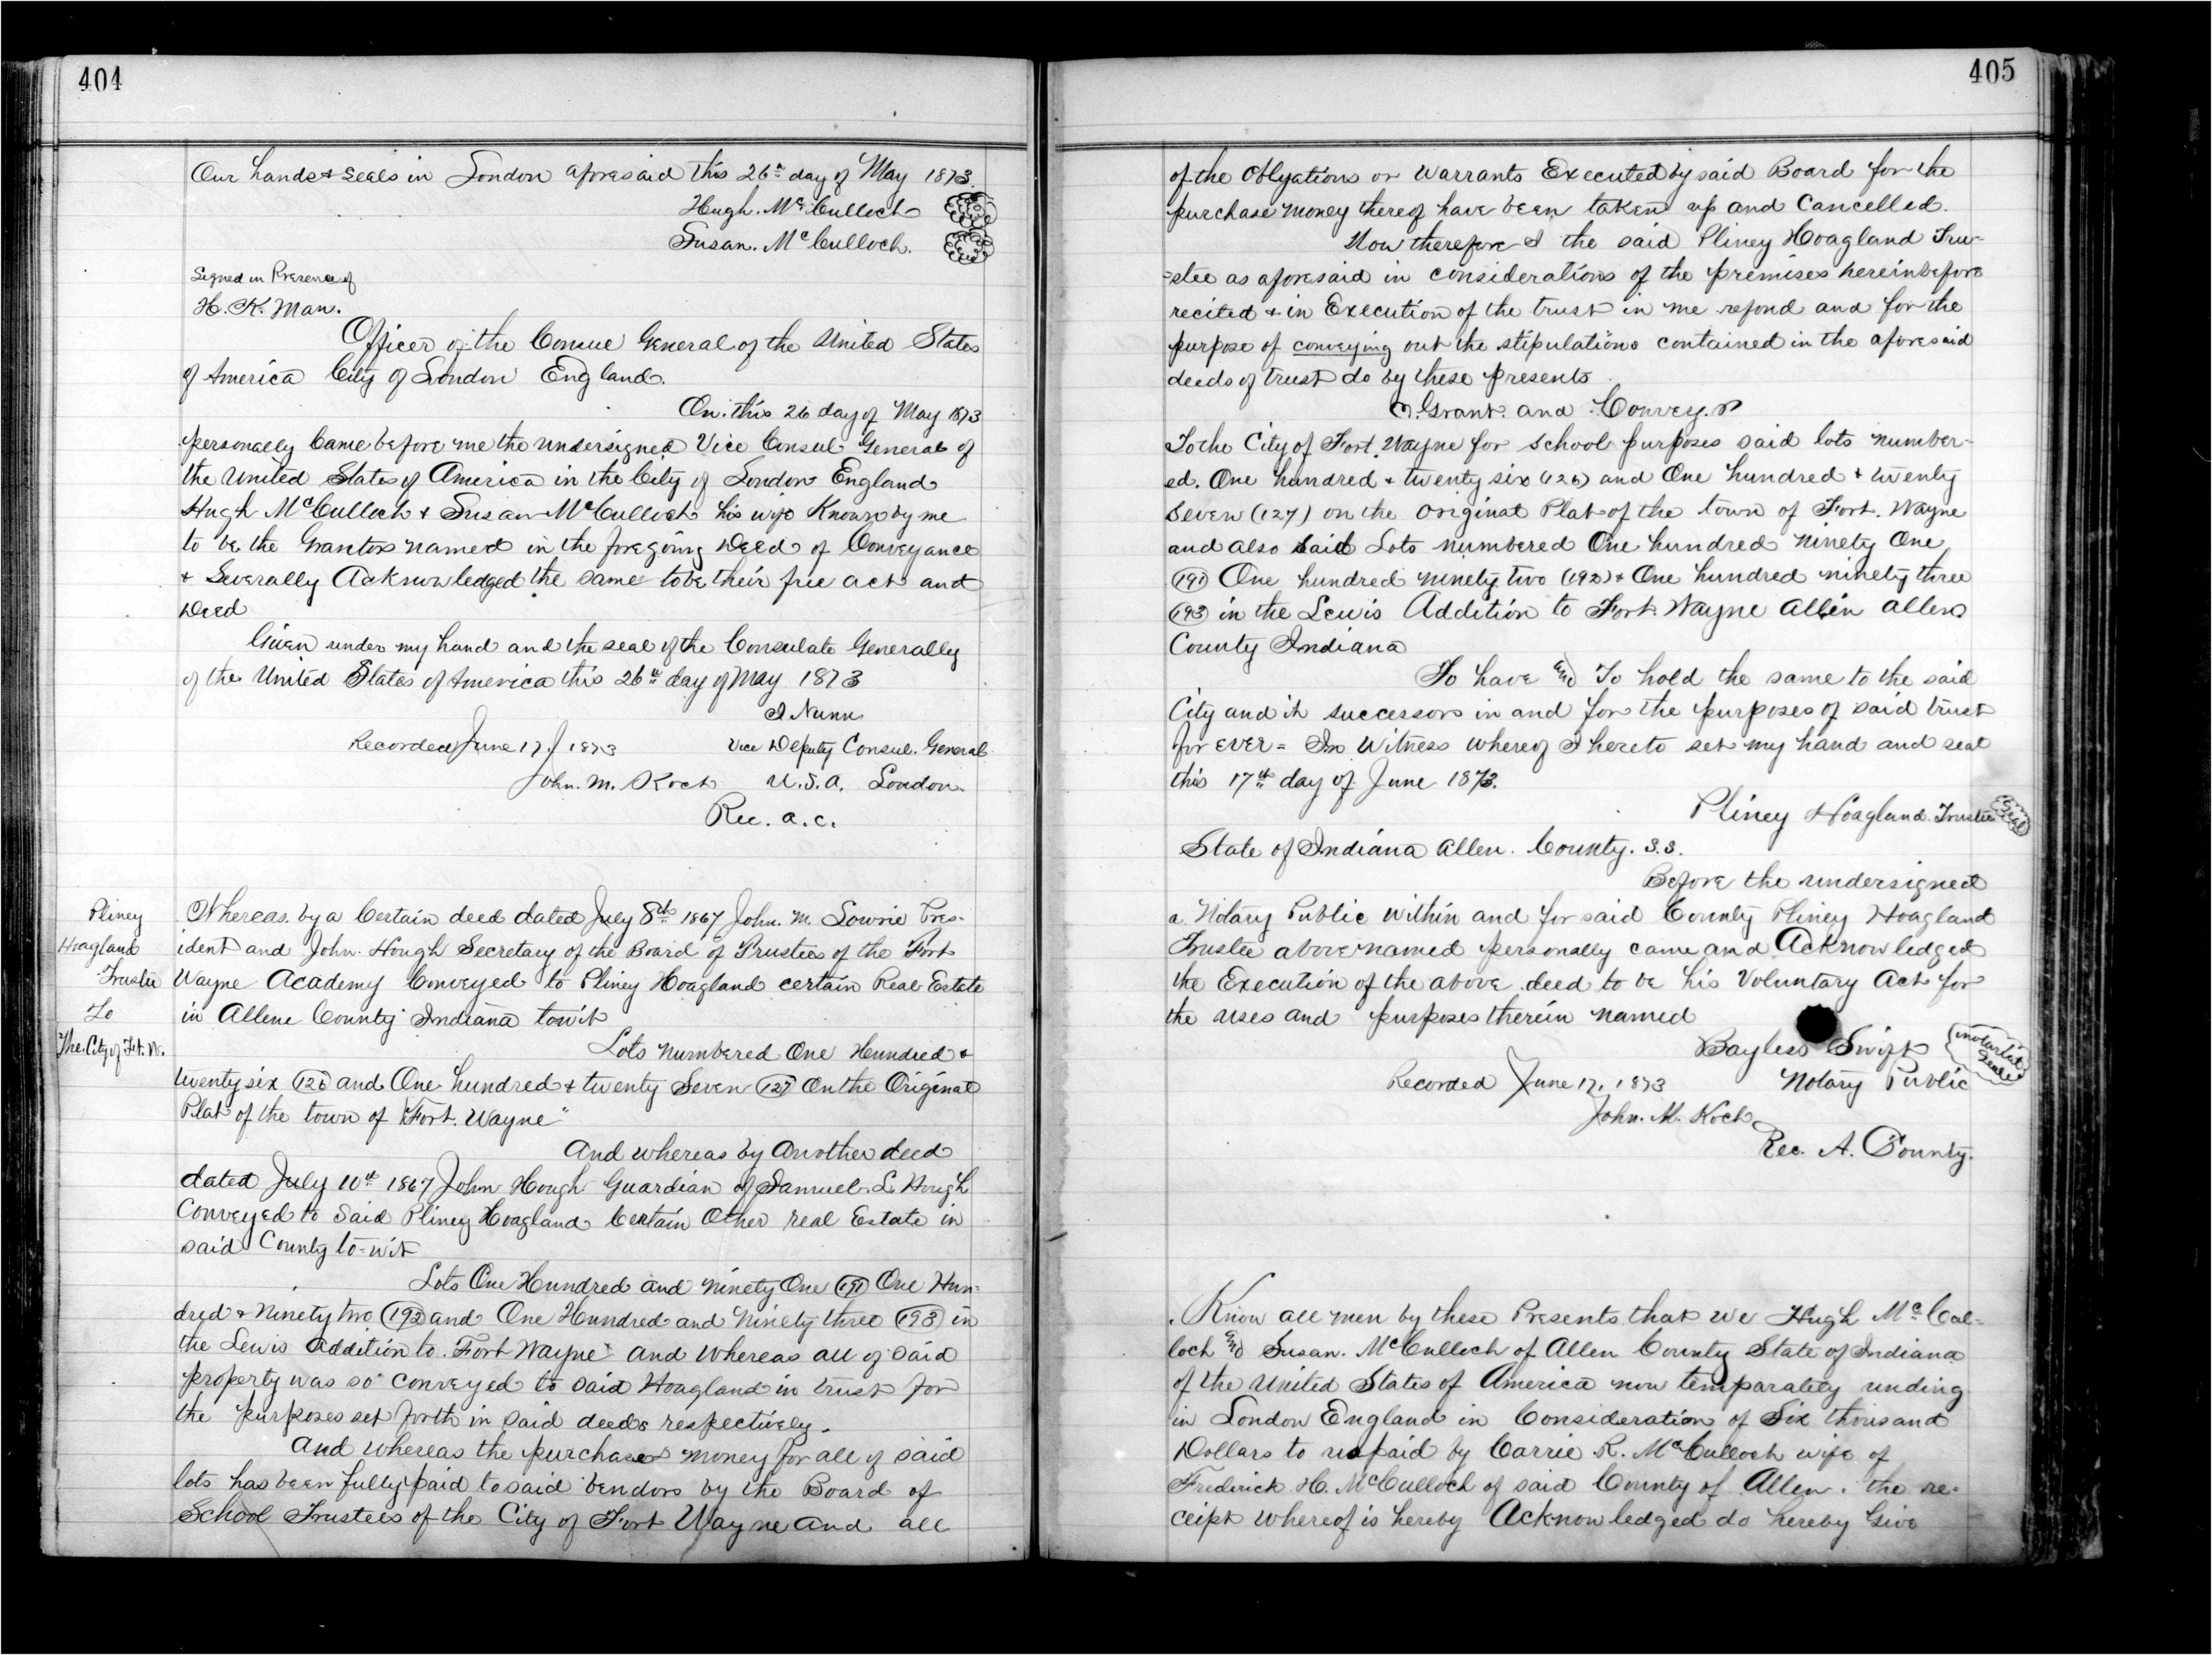 404
Our hands & seals in London aforesaid this 26th day of May 1873.
Hugh. McCulloch
Susan. McCulloch.
Signed in Presence of
H. K. Man.
Officer of the Consul General of the United States
of America City of London England.
On this 26 day of May 1873
personally Came before me the undersigned Vice Consul General of
the United States of America in the City of London England
Hugh McCulloch & Susan McCulloch his wife Known by me
to be the Grantors named in the foregoing Deed of Conveyance
& Severally Acknowledged the same to be their free act and
Deed
Given under my hand and the seal of the Consulate Generally
of the United States of America this 26th day of May 1873
J Nunn
Recorded June 17, 1873 Vice Deputy Consul. General
John. M. Koch U.S.A. London.
Rec. A. C.
Pliney
Hoagland
Trustee
To
The City of Ft. W.
Whereas by a Certain deed dated July 8th 1867 John. M. Lowrie Pres-
ident and John Hough Secretary of the Board of Trustees of the Fort
Wayne Academy Conveyed to Pliney Hoagland certain Real Estate
in Allene County Indiana towit
Lots Numbered One Hundred &
twenty six (126) and One hundred & twenty Seven (127) On the Original
Plat of the town of Fort. Wayne"
And whereas by Another deed
dated July 10th 1867 John Hough Guardian of Samuel. L. Hough
Conveyed to Said Pliney Hoagland Certain Other real Estate in
said County to-wit
Lots One Hundred and Ninety One (191) One Hun-
dred & Ninety two (192) and One Hundred and Ninety three (193) in
the Lewis Addition to Fort Wayne" And Whereas all of said
property was so conveyed to said Hoagland in trust for
the purposes set forth in said deeds respectively.
And whereas the purchase money for all of said
lots has been fully paid to said vendors by the Board of
School Trustees of the City of Fort Wayne and all
405
of the Obligations or Warrants Executed by said Board for the
purchase money thereof have been taken up and Cancelled.
Now therefore I the said Pliney Hoagland Tru-
=stee as aforesaid in considerations of the premises hereinbefore
recited & in Execution of the trust in me refond and for the
purpose of conveying out the stipulations contained in the aforesaid
deeds of trust do by these presents
Grant. and Convey.
To the City of Fort. Wayne for School purposes said lots number-
ed. One hundred & twenty six (126) and One hundred & twenty
Seven (127) on the Original Plat of the town of Fort. Wayne
and also said Lots numbered One hundred Ninety One
(191) One hundred ninety two (192) & One hundred ninety three
(193) in the Lewis Addition to Fort. Wayne Allin Allen
County Indiana
To have and To hold the same to the said
City and it successors in and for the purposes of said trust
for EVER = In Witness whereof I hereto set my hand and seal
this 17th day of June 1873.
Pliney Hoagland. Trustee Seal
State of Indiana Allen. County. S.S.
Before the undersigned
a. Notary Public Within and for said County Pliney Hoagland
Trustee above named personally came and Acknowledged
the Execution of the above deed to be his Voluntary Act for
the uses and purposes therein named
Bayless Swift Notarial Seal
Recorded June 17, 1873 Notary Public
John. M. Koch
Rec. A. County.
Know all men by these Presents that we Hugh McCul-
loch and Susan. McCulloch of Allen County State of Indiana
of the United States of America now temparately unding
in London England in Consideration of Six thousand
Dollars to us paid by Carrie R. McCulloch wife of
Frederick H. McCulloch of said County of Allen. the re-
ceipt whereof is hereby Acknowledged do hereby Give